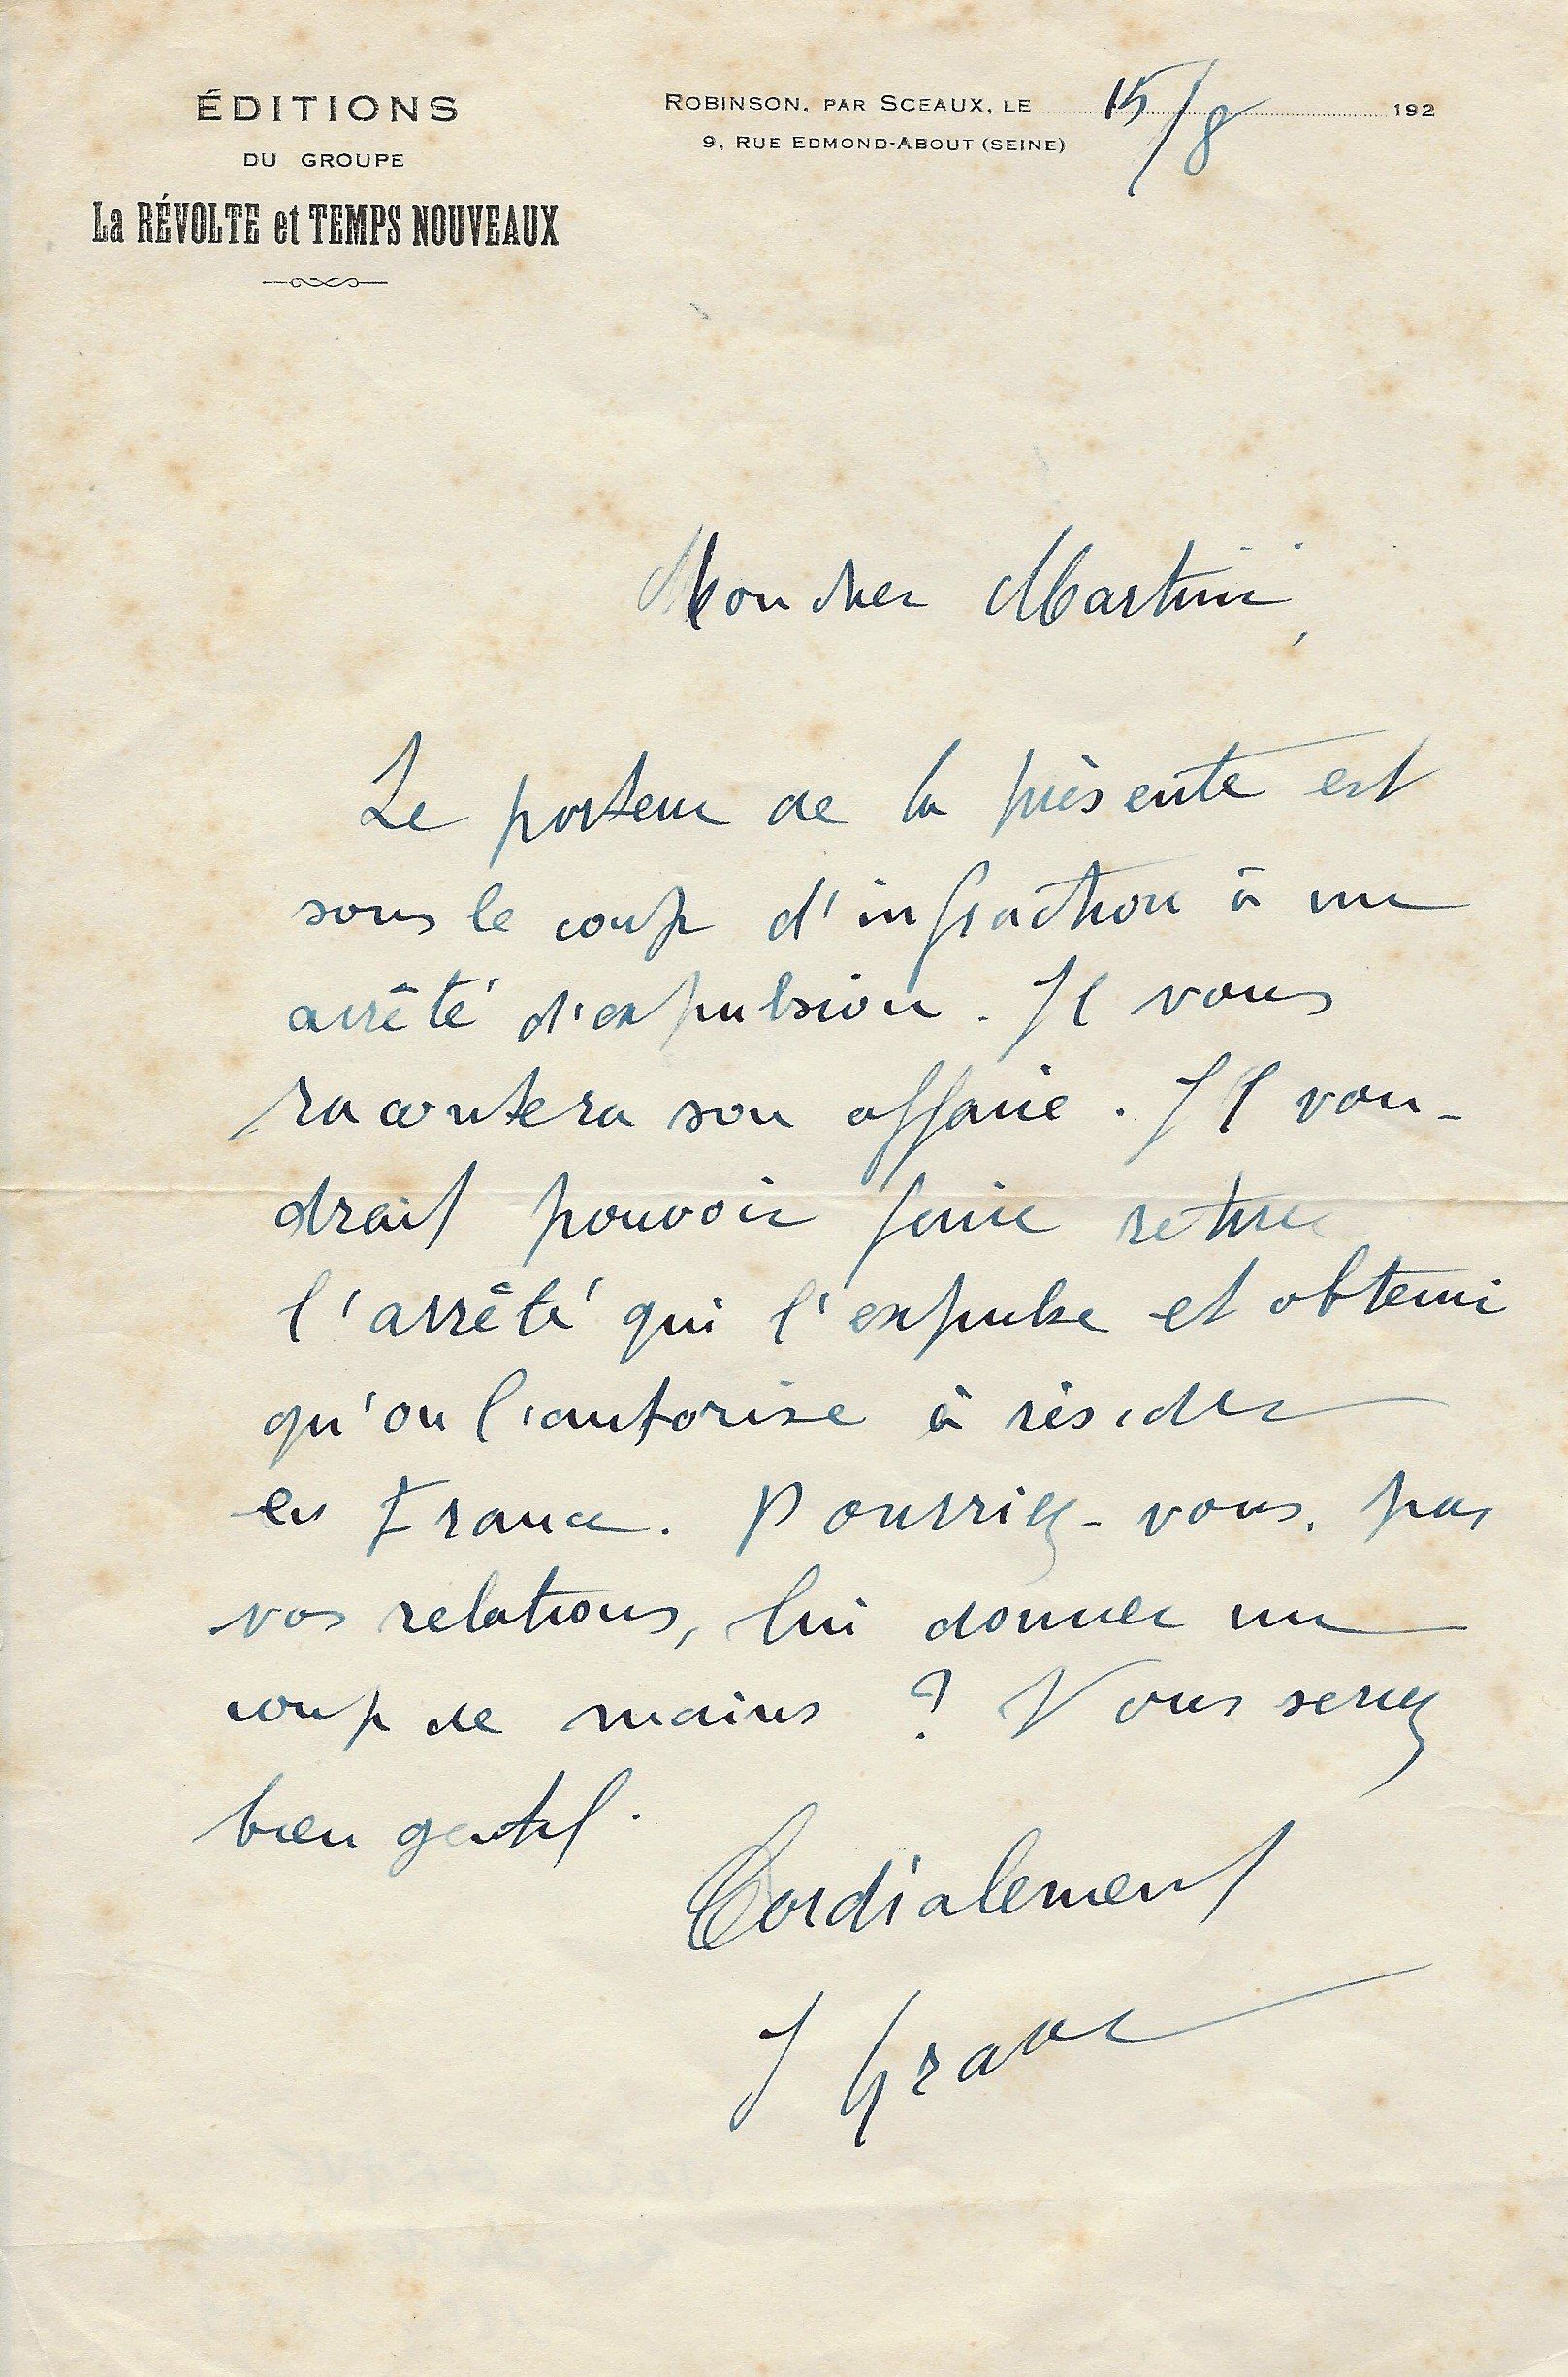 ÉDITIONS
DU GROUPE
La RÉVOLTE et TEMPS NOUVEAUX
ROBINSON, PAR SCEAUX, LE 15/8 192
9, RUE EDMOND-ABOUT (SEINE)
Mon cher Martini,
Le porteur de la présente est
sous le coup d'infraction à un
arrêté d'expulsion. Il vous
racontera son affaire. Il vou-
drait pouvoir faire retirer
l'arrêté qui l'expulse et obtenir
qu'on l'autorise à résider
en France. Pourriez-vous, par
vos relations, lui donner un
coup de mains ? Vous serez
bien gentil.
Cordialement
J Grave